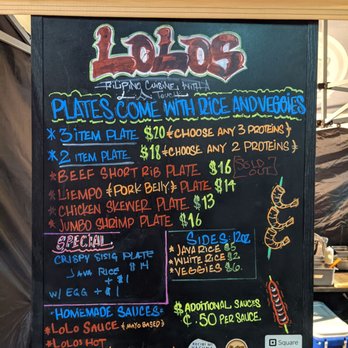 LOLOS
FILIPINO CUISINE WITH A
TOUCH
PLATES COME WITH RICE AND VEGGIES
* 3 ITEM PLATE $20 (CHOOSE ANY 3 PROTEINS)
* 2 ITEM PLATE $18 (CHOOSE ANY 2 PROTEINS)
* BEEF SHORT RIB PLATE $16 [SOLD OUT]
* LIEMPO (PORK BELLY) PLATE $14
* CHICKEN SKEWER PLATE $13
* JUMBO SHRIMP PLATE $16
SPECIAL
CRISPY SISIG PLATE
$14
JAVA RICE
+ $1
W/ EGG + $1
SIDES: 12oz
* JAVA RICE $3
* WHITE RICE $2
* VEGGIES $6
-HOMEMADE SAUCES-
* LOLO SAUCE (MAYO BASED)
* LOLOS HOT
$ ADDITIONAL SAUCES
¢.50 PER SAUCE.
Square